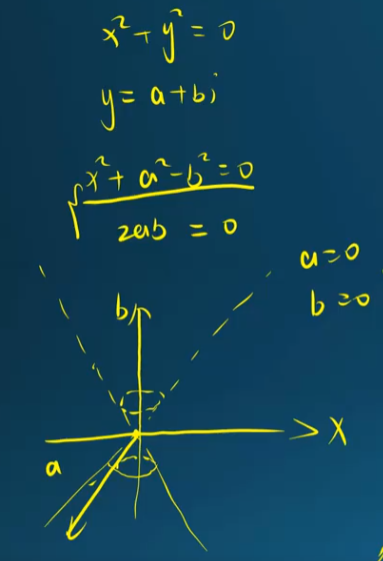 x² + y² = 0
y = a + bi
x² + a² - b² = 0
2ab = 0
a = 0
b = 0
b
X
a